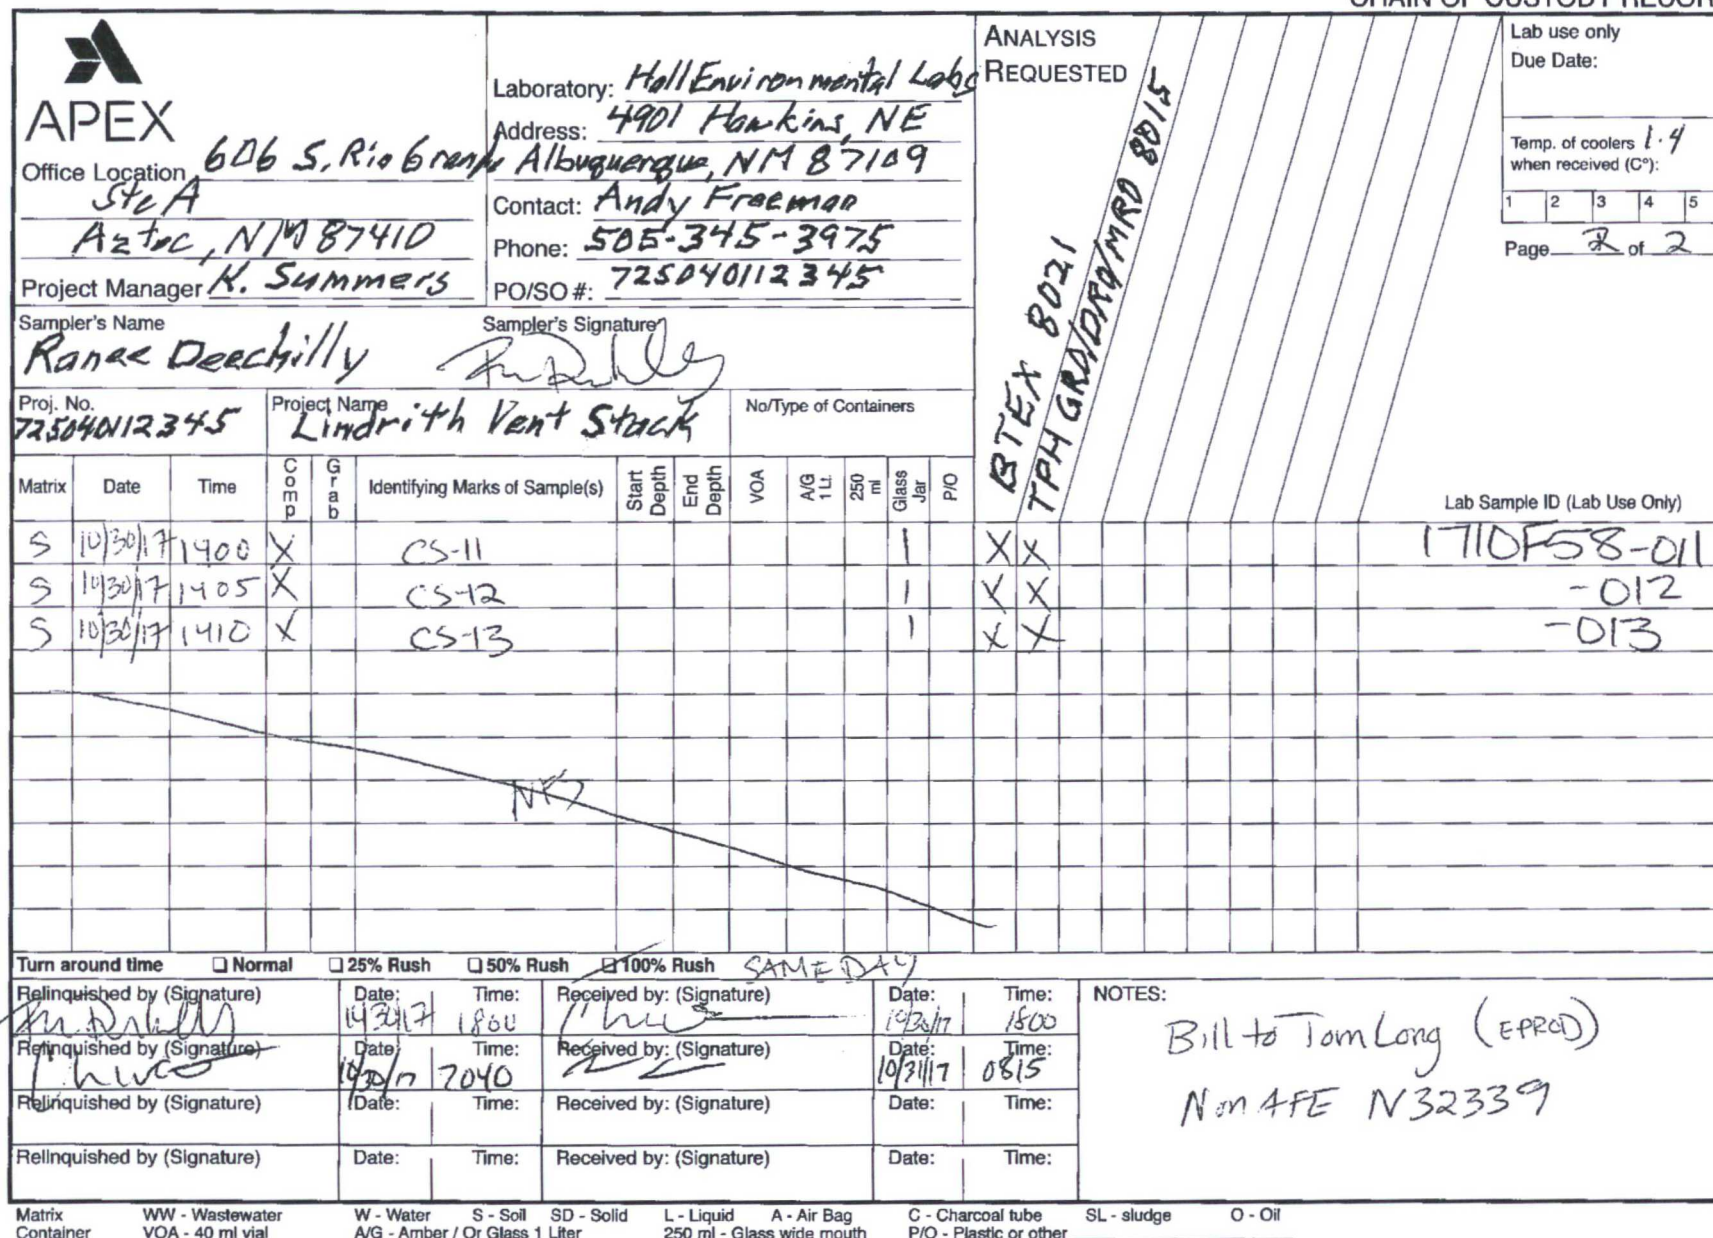 CHAIN OF CUSTODY RECOR
APEX
Office Location 606 S. Rio Grande
Ste A
Aztec, NM 87410
Project Manager K. Summers
Laboratory: Hall Environmental Labs
Address: 4901 Hawkins, NE
Albuquerque, NM 87109
Contact: Andy Freeman
Phone: 505-345-3975
PO/SO #: 725040112345
ANALYSIS
REQUESTED
BTEX 8021
TPH GRO/DRO/MRO 8015
Lab use only
Due Date:
Temp. of coolers 1.4
when received (C°):
1 2 3 4 5
Page 2 of 2
Sampler's Name
Ranee Deechilly
Sampler's Signature
Proj. No.
725040112345
Project Name
Lindrith Vent Stack
No/Type of Containers
Matrix Date Time Comp Grab Identifying Marks of Sample(s) Start Depth End Depth VOA A/G 1 Lt. 250 ml Glass Jar P/O Lab Sample ID (Lab Use Only)
S 10/30/17 1400 X CS-11 1 X X 1710F58-011
S 10/30/17 1405 X CS-12 1 X X -012
S 10/30/17 1410 X CS-13 1 X X -013
Turn around time ❑ Normal ❑ 25% Rush ❑ 50% Rush ❑ 100% Rush SAME DAY
Relinquished by (Signature) Date: Time: Received by: (Signature) Date: Time:
10/30/17 1800 10/30/17 1800
Relinquished by (Signature) Date: Time: Received by: (Signature) Date: Time:
10/30/17 2040 10/31/17 0815
Relinquished by (Signature) Date: Time: Received by: (Signature) Date: Time:
Relinquished by (Signature) Date: Time: Received by: (Signature) Date: Time:
NOTES:
Bill to Tom Long (EPROD)
Non AFE N32339
Matrix WW - Wastewater W - Water S - Soil SD - Solid L - Liquid A - Air Bag C - Charcoal tube SL - sludge O - Oil
Container VOA - 40 ml vial A/G - Amber / Or Glass 1 Liter 250 ml - Glass wide mouth P/O - Plastic or other